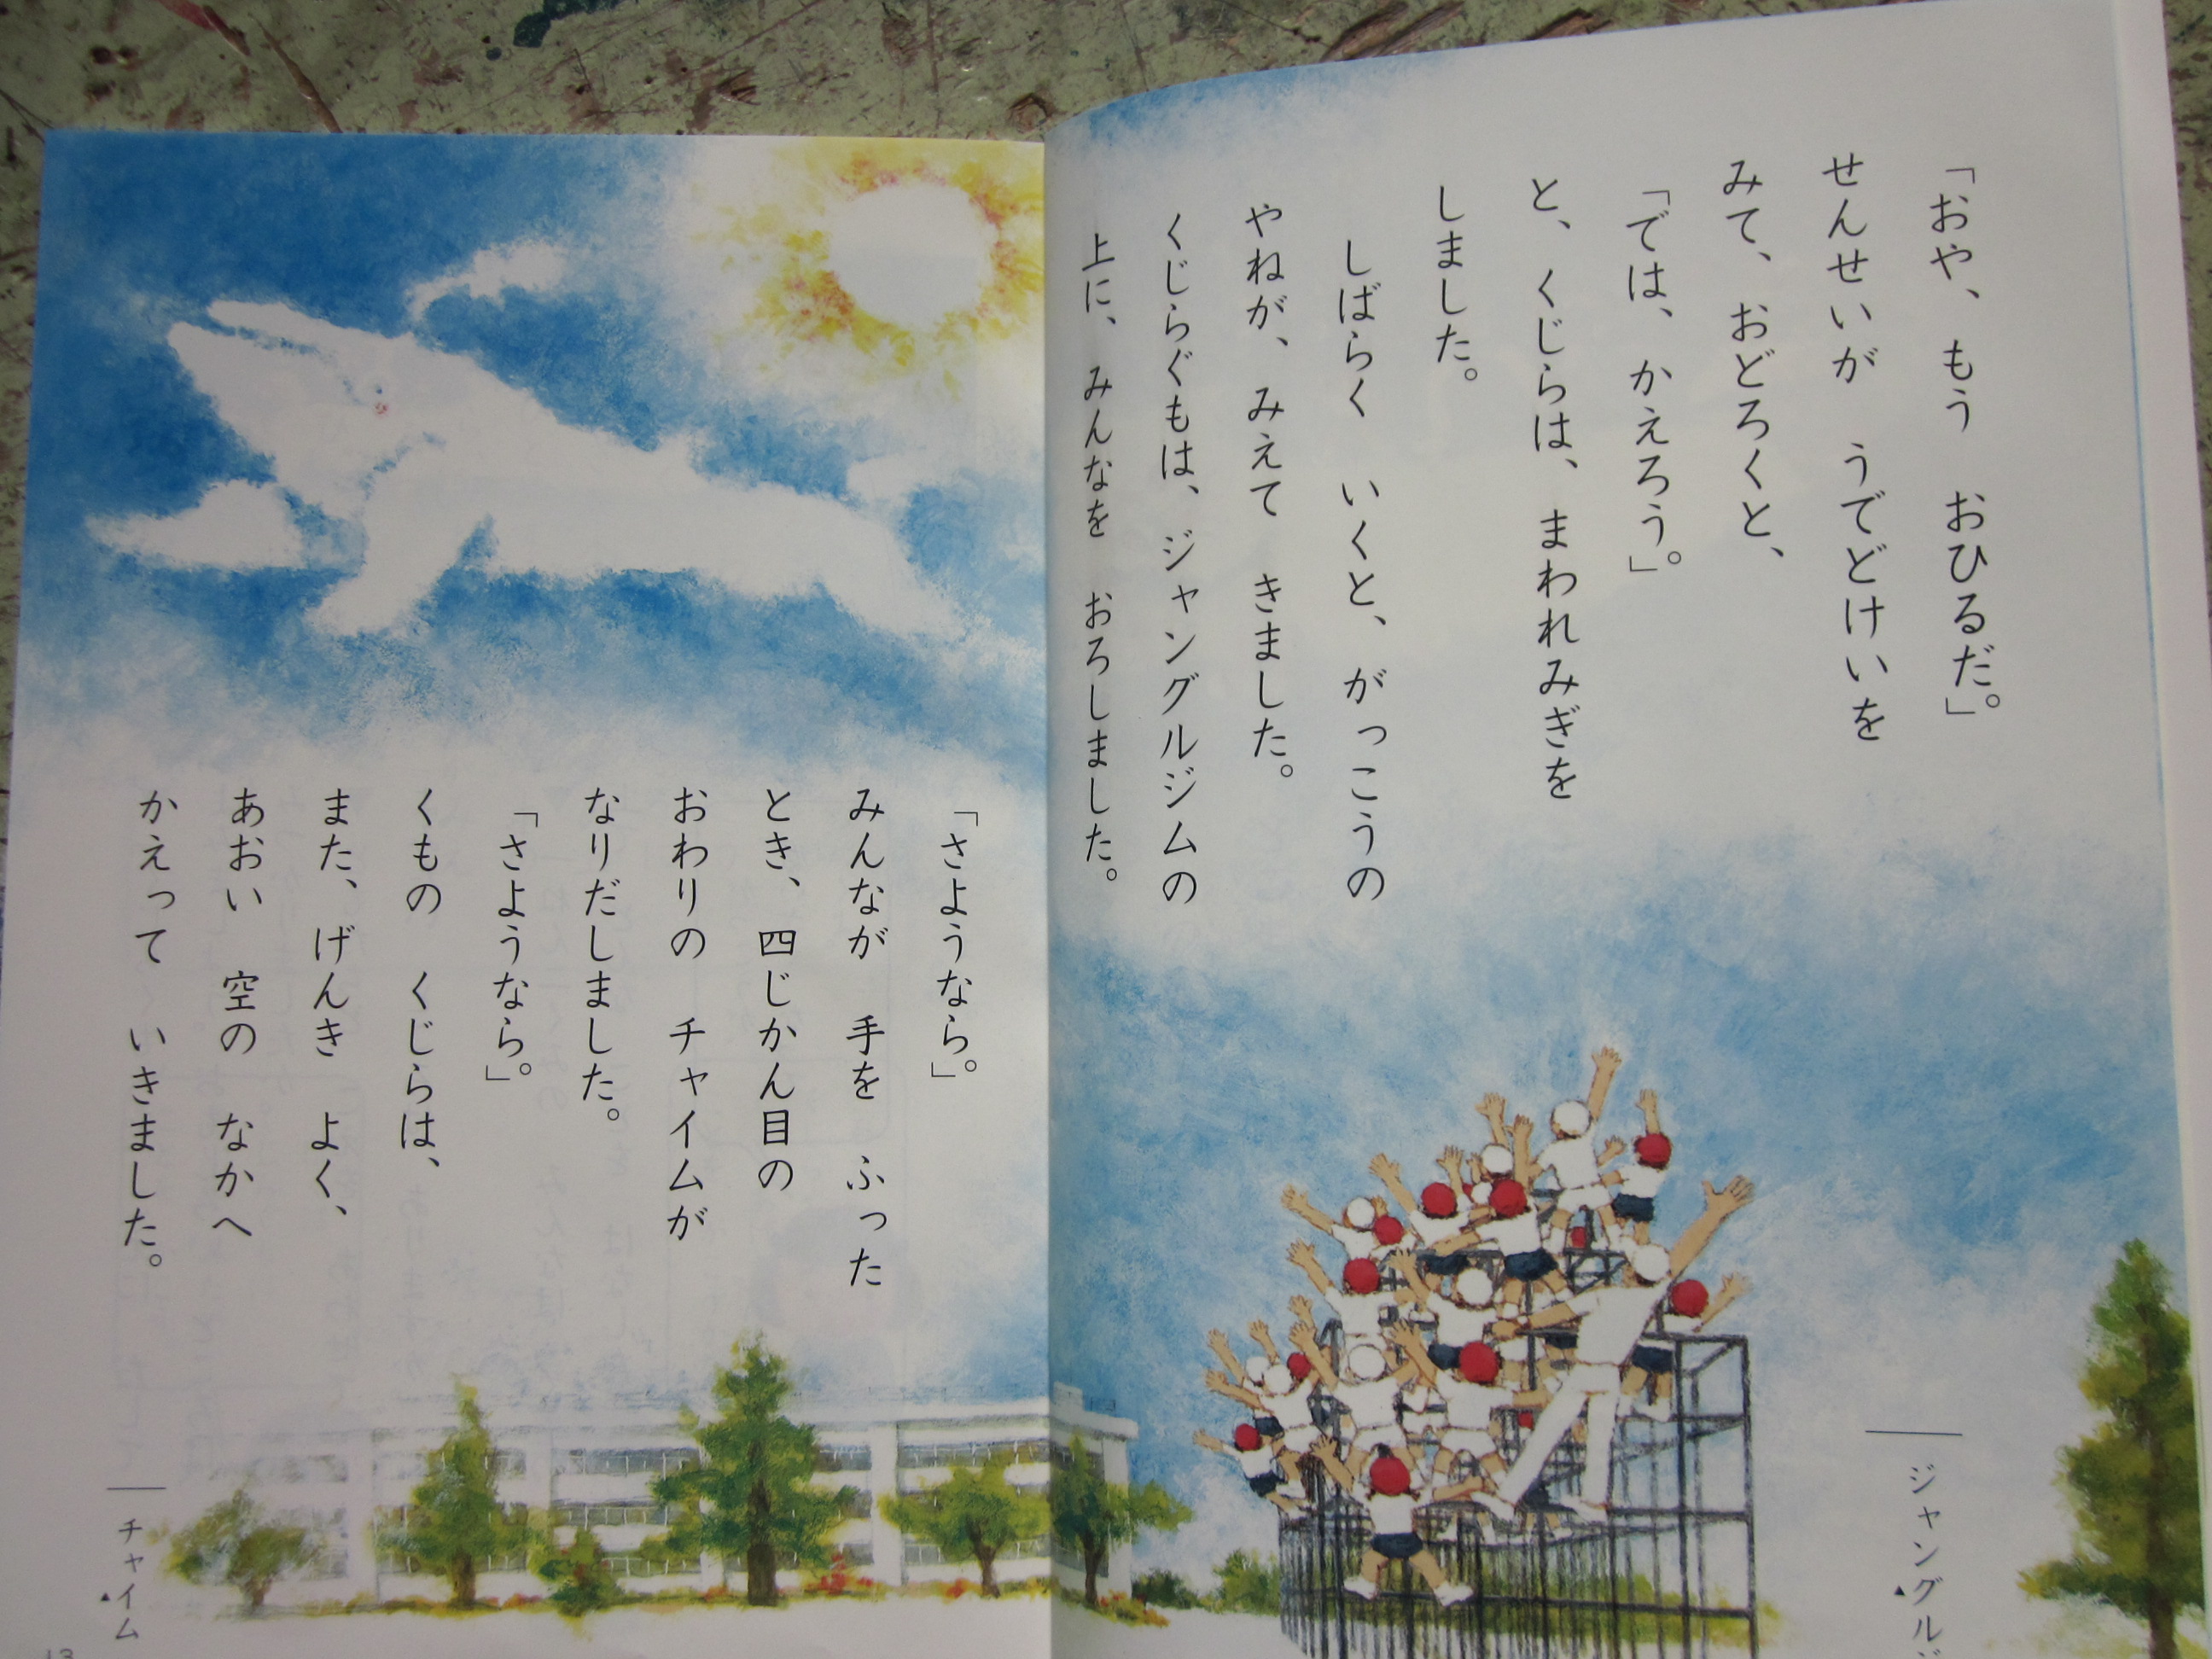 「おや、もう　おひるだ。」
せんせいが　うでどけいを
みて、おどろくと、
「では、かえろう。」
と、くじらは、まわれみぎを
しました。
しばらく　いくと、がっこうの
やねが、みえて　きました。
くじらぐもは、ジャングルジムの
上に、みんなを　おろしました。
ジャングル
「さようなら。」
みんなが　手を　ふった
とき、四じかん目の
おわりの　チャイムが
なりだしました。
「さようなら。」
くもの　くじらは、
また、げんき　よく、
あおい　空の　なかへ
かえって　いきました。
チャイム
13